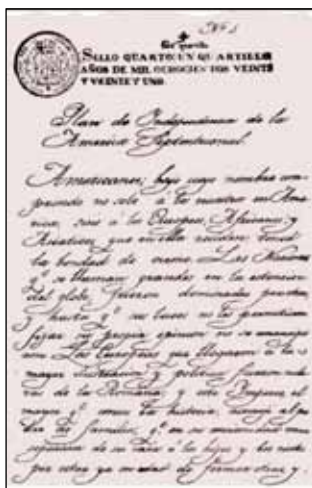 Nº 1
SELLO QUARTO: UN QUARTILLO
AÑOS DE MIL OCHOCIENTOS VEINTE
Y VEINTE Y UNO.
Plan de Independencia de la
America Septentrional.
Americanos, bajo cuyo nombre com-
prendo no solo á los nacidos en Ame-
rica, sino á los Europeos, Africanos y
Asiaticos que en ella residen: tened
la bondad de oirme. Las Naciones
qᵉ se llaman grandes en la extencion
del globo, fueron dominadas por otras,
y hasta qᵉ sus luces no les permitieron
fijar su propia opinion no se emancipa-
ron. Las Europeas que llegaron á la
mayor ilustracion y politica fueron escla-
vas de la Romana; y este Imperio, el
mayor qᵉ conoce la historia, asemejó al pa-
dre de familia, qᵉ en su ancianidad mira
separarse de su casa á los hijos y los nietos
por estar ya en edad de formar otras y